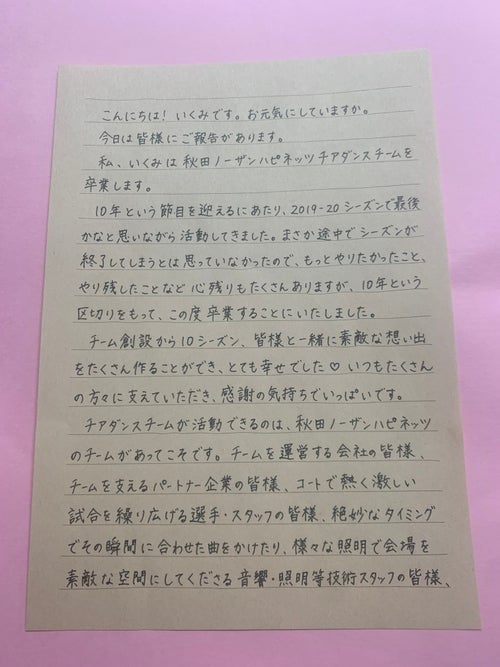 こんにちは！いくみです。お元気にしていますか。
今日は皆様にご報告があります。
私、いくみは秋田ノーザンハピネッツチアダンスチームを
卒業します。
10年という節目を迎えるにあたり、2019-20シーズンで最後
かなと思いながら活動してきました。まさか途中でシーズンが
終了してしまうとは思っていなかったので、もっとやりたかったこと、
やり残したことなど心残りもたくさんありますが、10年という
区切りをもって、この度卒業することにいたしました。
チーム創設から10シーズン、皆様と一緒に素敵な想い出
をたくさん作ることができ、とても幸せでした♡いつもたくさん
の方々に支えていただき、感謝の気持ちでいっぱいです。
チアダンスチームが活動できるのは、秋田ノーザンハピネッツ
のチームがあってこそです。チームを運営する会社の皆様、
チームを支えるパートナー企業の皆様、コートで熱く激しい
試合を繰り広げる選手・スタッフの皆様、絶妙なタイミング
でその瞬間に合わせた曲をかけたり、様々な照明で会場を
素敵な空間にしてくださる音響・照明等技術スタッフの皆様、